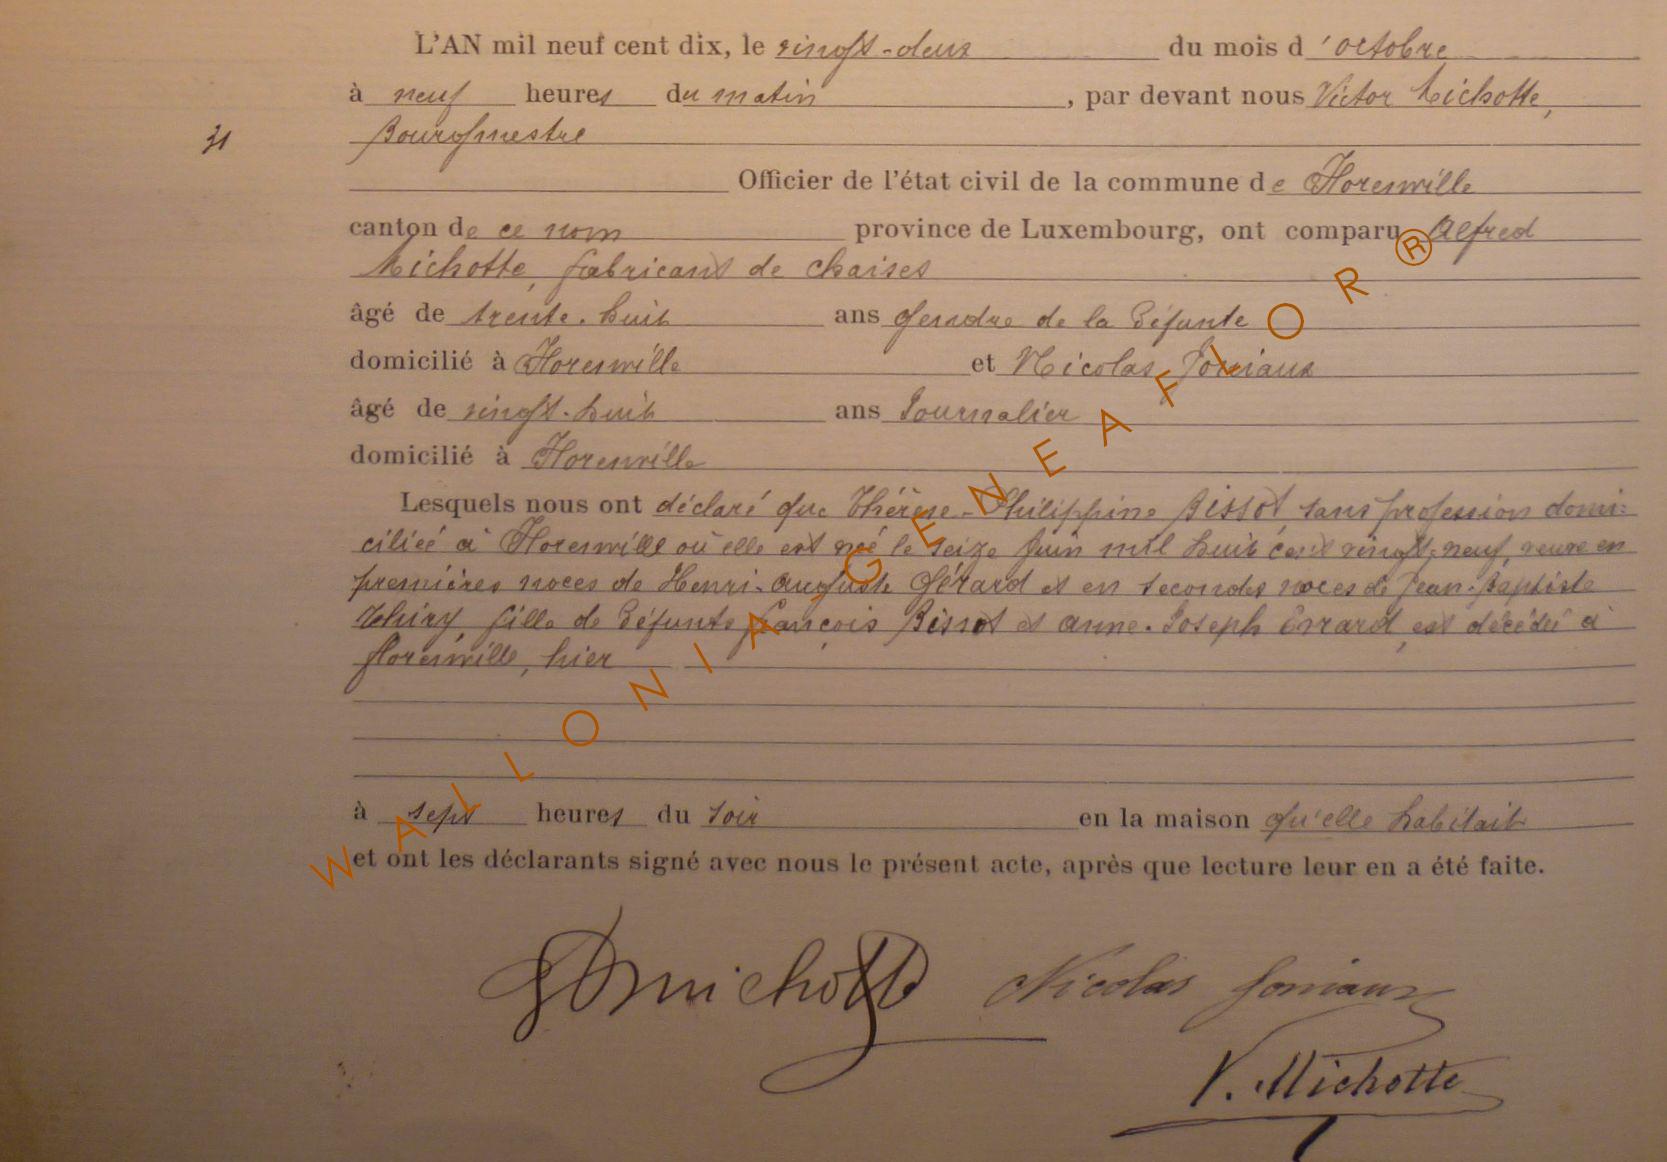 L'AN mil neuf cent dix, le vingt-deux du mois d'octobre
à neuf heures du matin, par devant nous Victor Michotte,
31
Bourgmestre
Officier de l'état civil de la commune de Florenville
canton de ce nom province de Luxembourg, ont comparu Alfred
Michotte, fabricant de chaises
âgé de trente-huit ans gendre de la défunte
domicilié à Florenville et Nicolas Goniaux
âgé de vingt-huit ans Journalier
domicilié à Florenville
Lesquels nous ont déclaré que Thérèse-Philippine Bissot sans profession domi-
ciliée à Florenville où elle est née le seize Juin mil huit cent vingt-neuf, veuve en
premières noces de Henri-Auguste Gérard et en secondes noces de Jean-Baptiste
Thiry fille de défunts François Bissot et Anne-Joseph Evrard, est décédée à
florenville, hier
à sept heures du soir en la maison qu'elle habitait
et ont les déclarants signé avec nous le présent acte, après que lecture leur en a été faite.
michotte Nicolas Goniaux
V. Michotte
WALLONIA-GENEAFLOR®